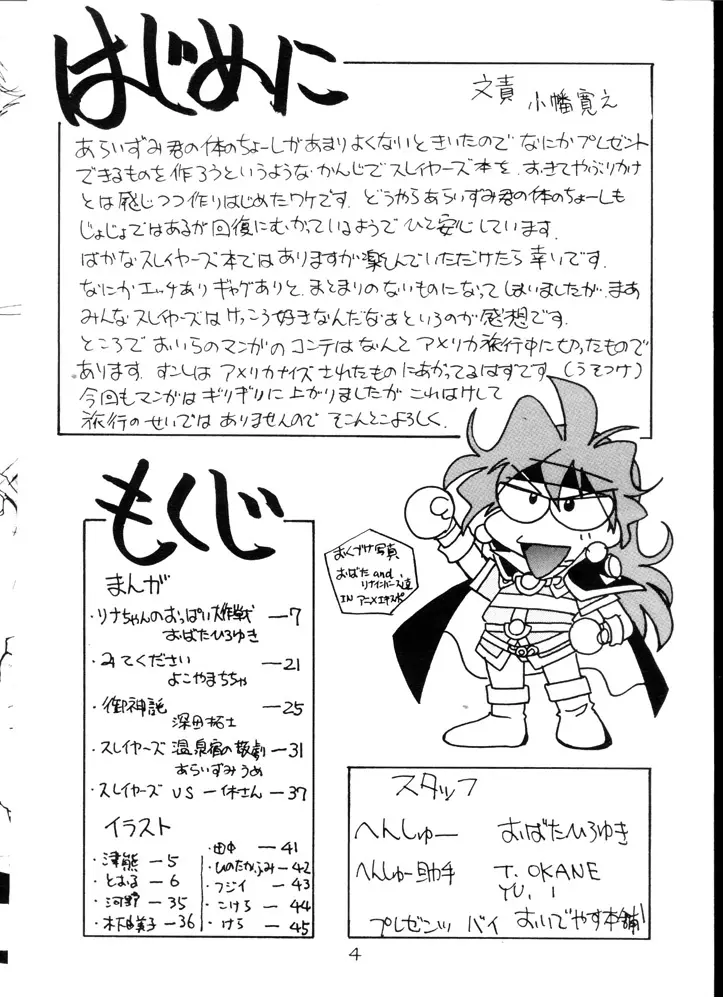 はじめに
文責 小幡寛之
あらいずみ君の体のちょーしがあまりよくないときいたので なにかプレゼント
できるものを作ろうというような かんじでスレイヤーズ本を、おきてやぶりかけ
とは感じつつ作りはじめたワケです。どうやらあらいずみ君の体のちょーしも
じょじょではあるが回復にむかっているようで ひと安心しています.
ばかなスレイヤーズ本ではありますが楽しんでいただけたら幸いです.
なにかエッチありギャグありと、まとまりのないものになってしまいましたが、まあ
みんなスレイヤーズはけっこう好きなんだなあというのが感想です.
ところでおいらのマンガのコンテはなんとアメリカ旅行中に切ったもので
あります. すこしはアメリカナイズされたものにあがってるはずです (うそつけ)
今回もマンガはギリギリに上がりましたが これはけして
旅行のせいではありませんので そこんとこよろしく.
もくじ
まんが
・リナちゃんのおっぱい大作戦 ―7
おばたひろゆき
・みてください ―21
よこやまちちゃ
・御神託 ―25
深田拓士
・スレイヤーズ 温泉宿の惨劇 ―31
あらいずみうめ
・スレイヤーズ VS 一休さん ―37
イラスト
・津熊 ―5
・とおる ―6
・河野 ―35
・木下 ―36
・田中 ―41
・ひのたかふみ ―42
・フジイ ―43
・こけら ―44
・けら ―45
おくづけ写真
おばた and
リナインバース達
IN アニメエキスポ
スタッフ
へんしゅー おばたひろゆき
へんしゅー助手 T. OKANE
YU. I
プレゼンツ バイ おいでやす本舗
4